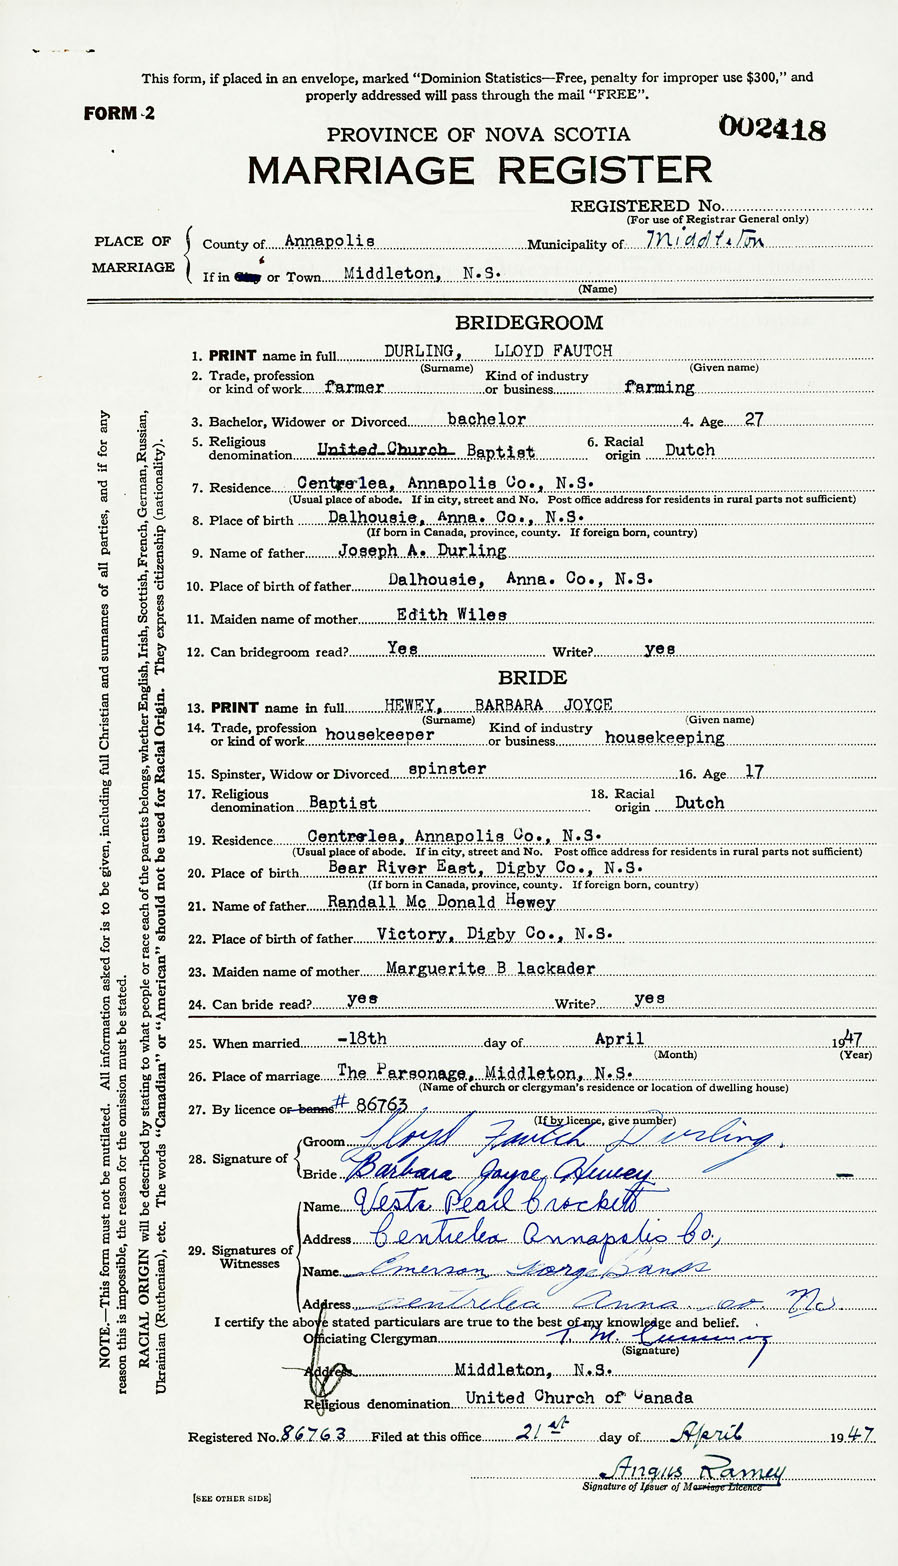 This form, if placed in an envelope, marked "Dominion Statistics—Free, penalty for improper use $300," and
properly addressed will pass through the mail "FREE".
FORM 2
002418
PROVINCE OF NOVA SCOTIA
MARRIAGE REGISTER
REGISTERED No.
(For use of Registrar General only)
PLACE OF MARRIAGE
County of Annapolis Municipality of Middleton
If in City or Town Middleton, N.S.
(Name)
BRIDEGROOM
1. PRINT name in full DURLING, LLOYD FAUTCH
(Surname) (Given name)
2. Trade, profession or kind of work farmer Kind of industry or business farming
3. Bachelor, Widower or Divorced bachelor 4. Age 27
5. Religious denomination United Church Baptist 6. Racial origin Dutch
7. Residence Centrelea, Annapolis Co., N.S.
(Usual place of abode. If in city, street and No. Post office address for residents in rural parts not sufficient)
8. Place of birth Dalhousie, Anna. Co., N.S.
(If born in Canada, province, county. If foreign born, country)
9. Name of father Joseph A. Durling
10. Place of birth of father Dalhousie, Anna. Co., N.S.
11. Maiden name of mother Edith Wiles
12. Can bridegroom read? Yes Write? yes
BRIDE
13. PRINT name in full HEWEY, BARBARA JOYCE
(Surname) (Given name)
14. Trade, profession or kind of work housekeeper Kind of industry or business housekeeping
15. Spinster, Widow or Divorced spinster 16. Age 17
17. Religious denomination Baptist 18. Racial origin Dutch
19. Residence Centrelea, Annapolis Co., N.S.
(Usual place of abode. If in city, street and No. Post office address for residents in rural parts not sufficient)
20. Place of birth Bear River East, Digby Co., N.S.
(If born in Canada, province, county. If foreign born, country)
21. Name of father Randall Mc Donald Hewey
22. Place of birth of father Victory, Digby Co., N.S.
23. Maiden name of mother Marguerite B lackader
24. Can bride read? yes Write? yes
25. When married -18th day of April 1947
(Month) (Year)
26. Place of marriage The Parsonage, Middleton, N.S.
(Name of church or clergyman's residence or location of dwelling house)
27. By licence or banns # 86763
(If by licence, give number)
28. Signature of
Groom Lloyd Fautch Durling.
Bride Barbara Joyce Hewey
29. Signatures of Witnesses
Name Vesta Pearl Crockett
Address Centrelea Annapolis Co.,
Name Emerson George Banks
Address Centrelea Anna. Co. N.S.
I certify the above stated particulars are true to the best of my knowledge and belief.
Officiating Clergyman T. M. Cumming
(Signature)
Address Middleton, N.S.
Religious denomination United Church of Canada
Registered No. 86763 Filed at this office 21st day of April 1947
Angus Ramey
Signature of Issuer of Marriage Licence
[SEE OTHER SIDE]
NOTE.—This form must not be mutilated. All information asked for is to be given, including full Christian and surnames of all parties, and if for any
reason this is impossible, the reason for the omission must be stated.
RACIAL ORIGIN will be described by stating to what people or race each of the parents belongs, whether English, Irish, Scottish, French, German, Russian,
Ukrainian (Ruthenian), etc. The words "Canadian" or "American" should not be used for Racial Origin. They express citizenship (nationality).